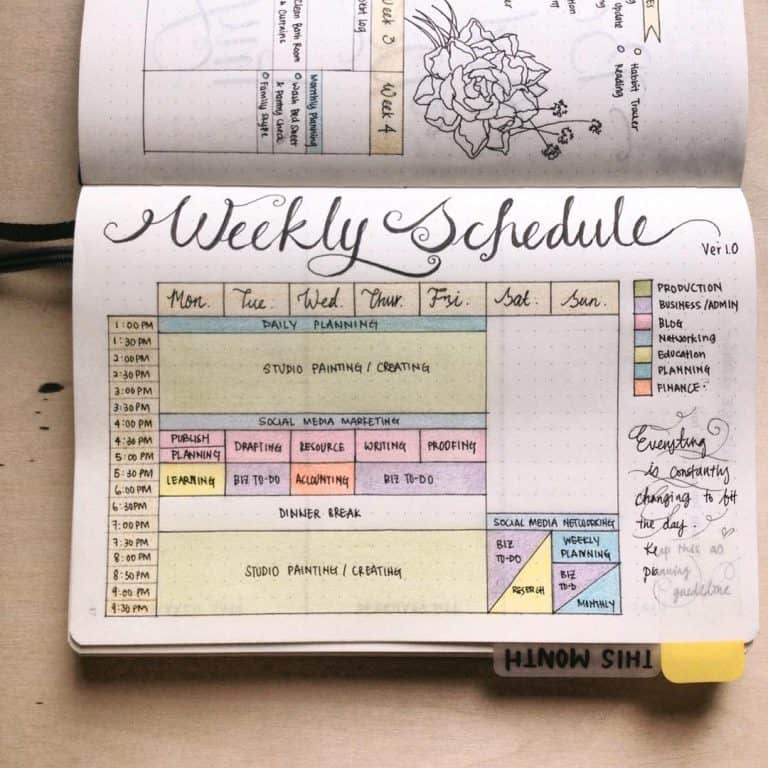 Week 3
Week 4
Clean Bath Room
& Curtains
Monthly Planning
Wash Bed Sheet
& Pantry Check
Family Skype
Update
Habbit Tracker
Reading
Weekly Schedule
Ver 1.0
Mon. Tue. Wed. Thur. Fri. Sat. Sun.
1:00 PM DAILY PLANNING
1:30 PM
2:00 PM
2:30 PM STUDIO PAINTING / CREATING
3:00 PM
3:30 PM
4:00 PM SOCIAL MEDIA MARKETING
4:30 PM PUBLISH DRAFTING RESOURCE WRITING PROOFING
5:00 PM PLANNING
5:30 PM LEARNING BIZ TO-DO ACCOUNTING BIZ TO-DO
6:00 PM
6:30 PM DINNER BREAK
7:00 PM SOCIAL MEDIA NETWORKING
7:30 PM BIZ TO-DO WEEKLY PLANNING
8:00 PM
8:30 PM STUDIO PAINTING / CREATING RESERCH BIZ TO-D
9:00 PM MONTHLY
9:30 PM
PRODUCTION
BUSINESS/ADMIN
BLOG
Networking
Education
PLANNING
FINANCE
Everything
is constantly
changing to fit
the day.
Keep this as
planning
guideline
THIS MONTH